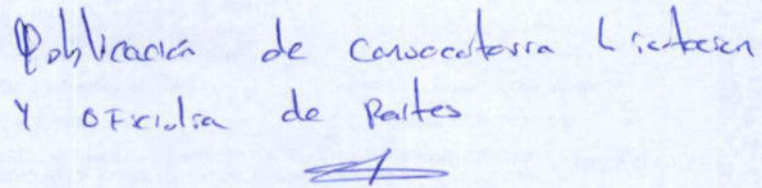 Publicación de convocatoria Licitacion
Y oficialia de Partes